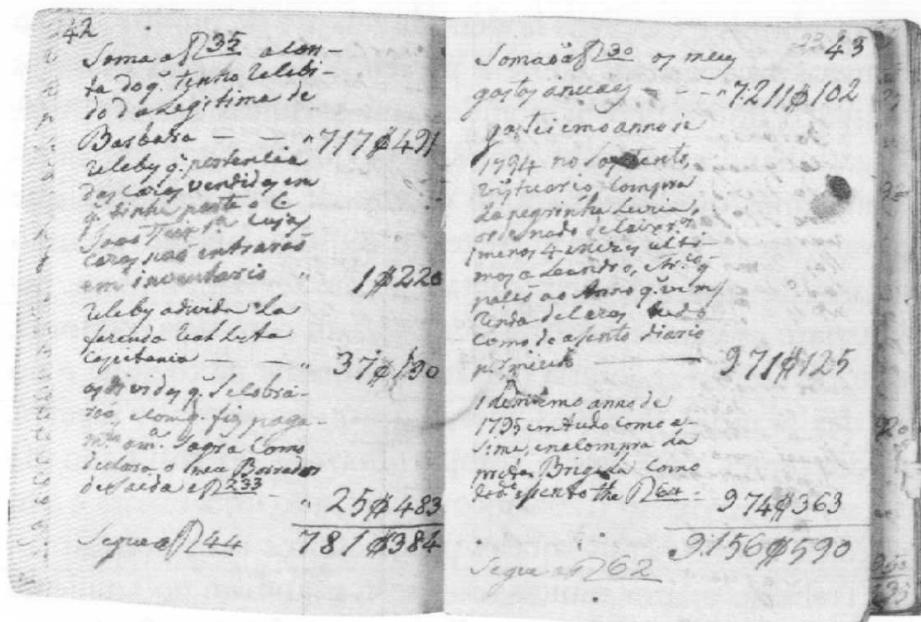 42
Soma a f 35 a con-
ta do q. tenho recebi-
do da Legitima de
Barbara — — " 717$491
Receby q. pertencia
das cazas vendidas em
q. tinha parte o C
João cujas
cazas não entrarão
em inventario " 1$220
Receby a divida da
fazenda Real desta
Capitania — — " 37$190
as dividas q. se cobra-
rão, e com q. fiz paga-
m.to a m.a Sogra como
declara o meu Borrador
de Saeda a f 233 - " 25$483
Segue a f 44 781$384
43
Somada a f 30 os meus
gastos anuaes - - " 7211$102
gastei em o anno de
1794 no
vistuario, compra
da negrinha Luzia,
ordenado de
menos 4 mezes ulti-
mos a Leandro,
ao Anno q. vem
Renda de cazas tudo
como de asento diario
p.r mim — 971$125
1 de mesmo anno de
1795 em tudo como a-
sima, e na compra da
preta Brigida como
asento the f 61 - 974$363
9156$590
Segue a f 62